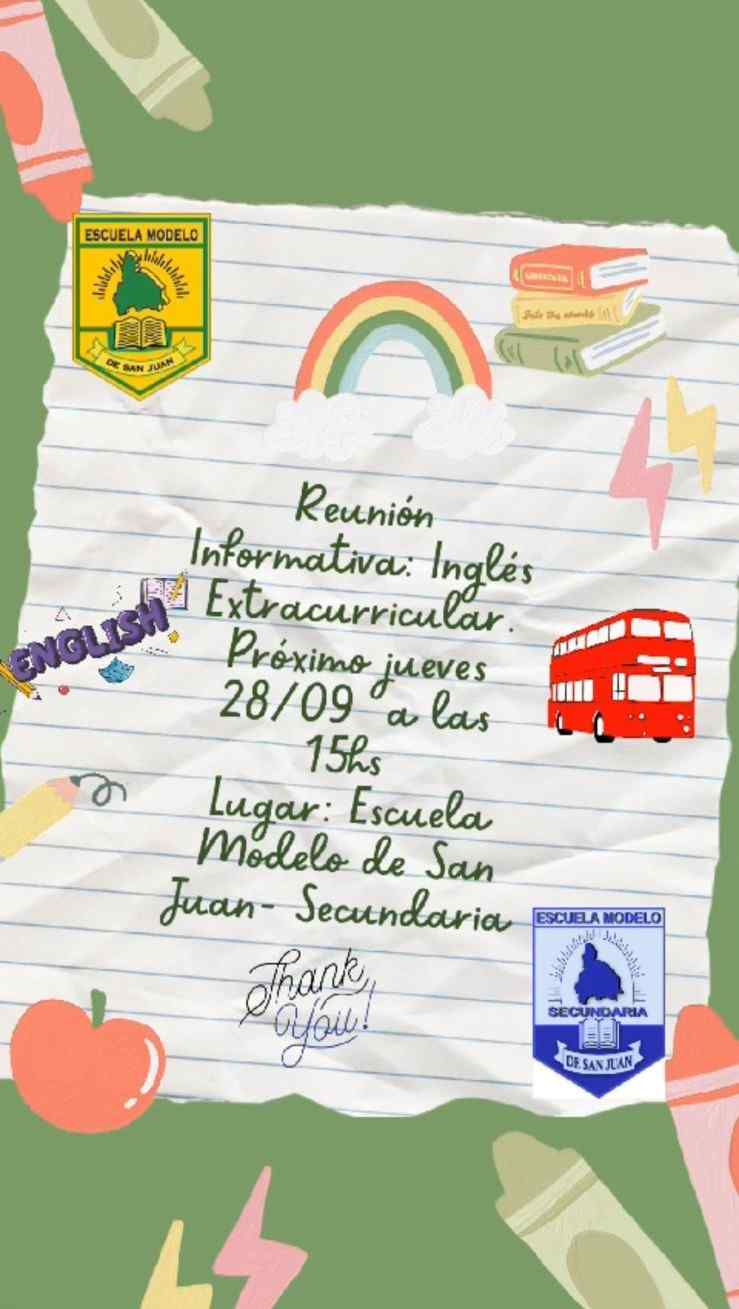 ESCUELA MODELO
DE SAN JUAN
Reunión
Informativa: Inglés
Extracurricular.
Próximo jueves
28/09 a las
15hs
Lugar: Escuela
Modelo de San
Juan- Secundaria
ENGLISH
Thank
You!
ESCUELA MODELO
SECUNDARIA
DE SAN JUAN